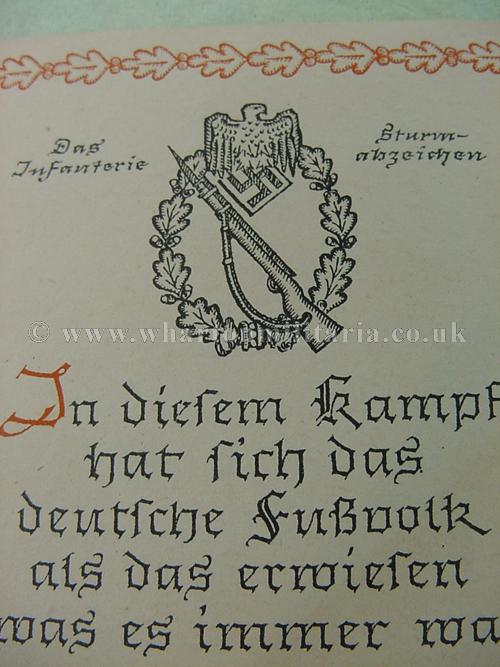 Das
Infanterie
Sturm-
abzeichen
In diesem Kampf
hat sich das
deutsche Fußvolk
als das erwiesen
was es immer wa